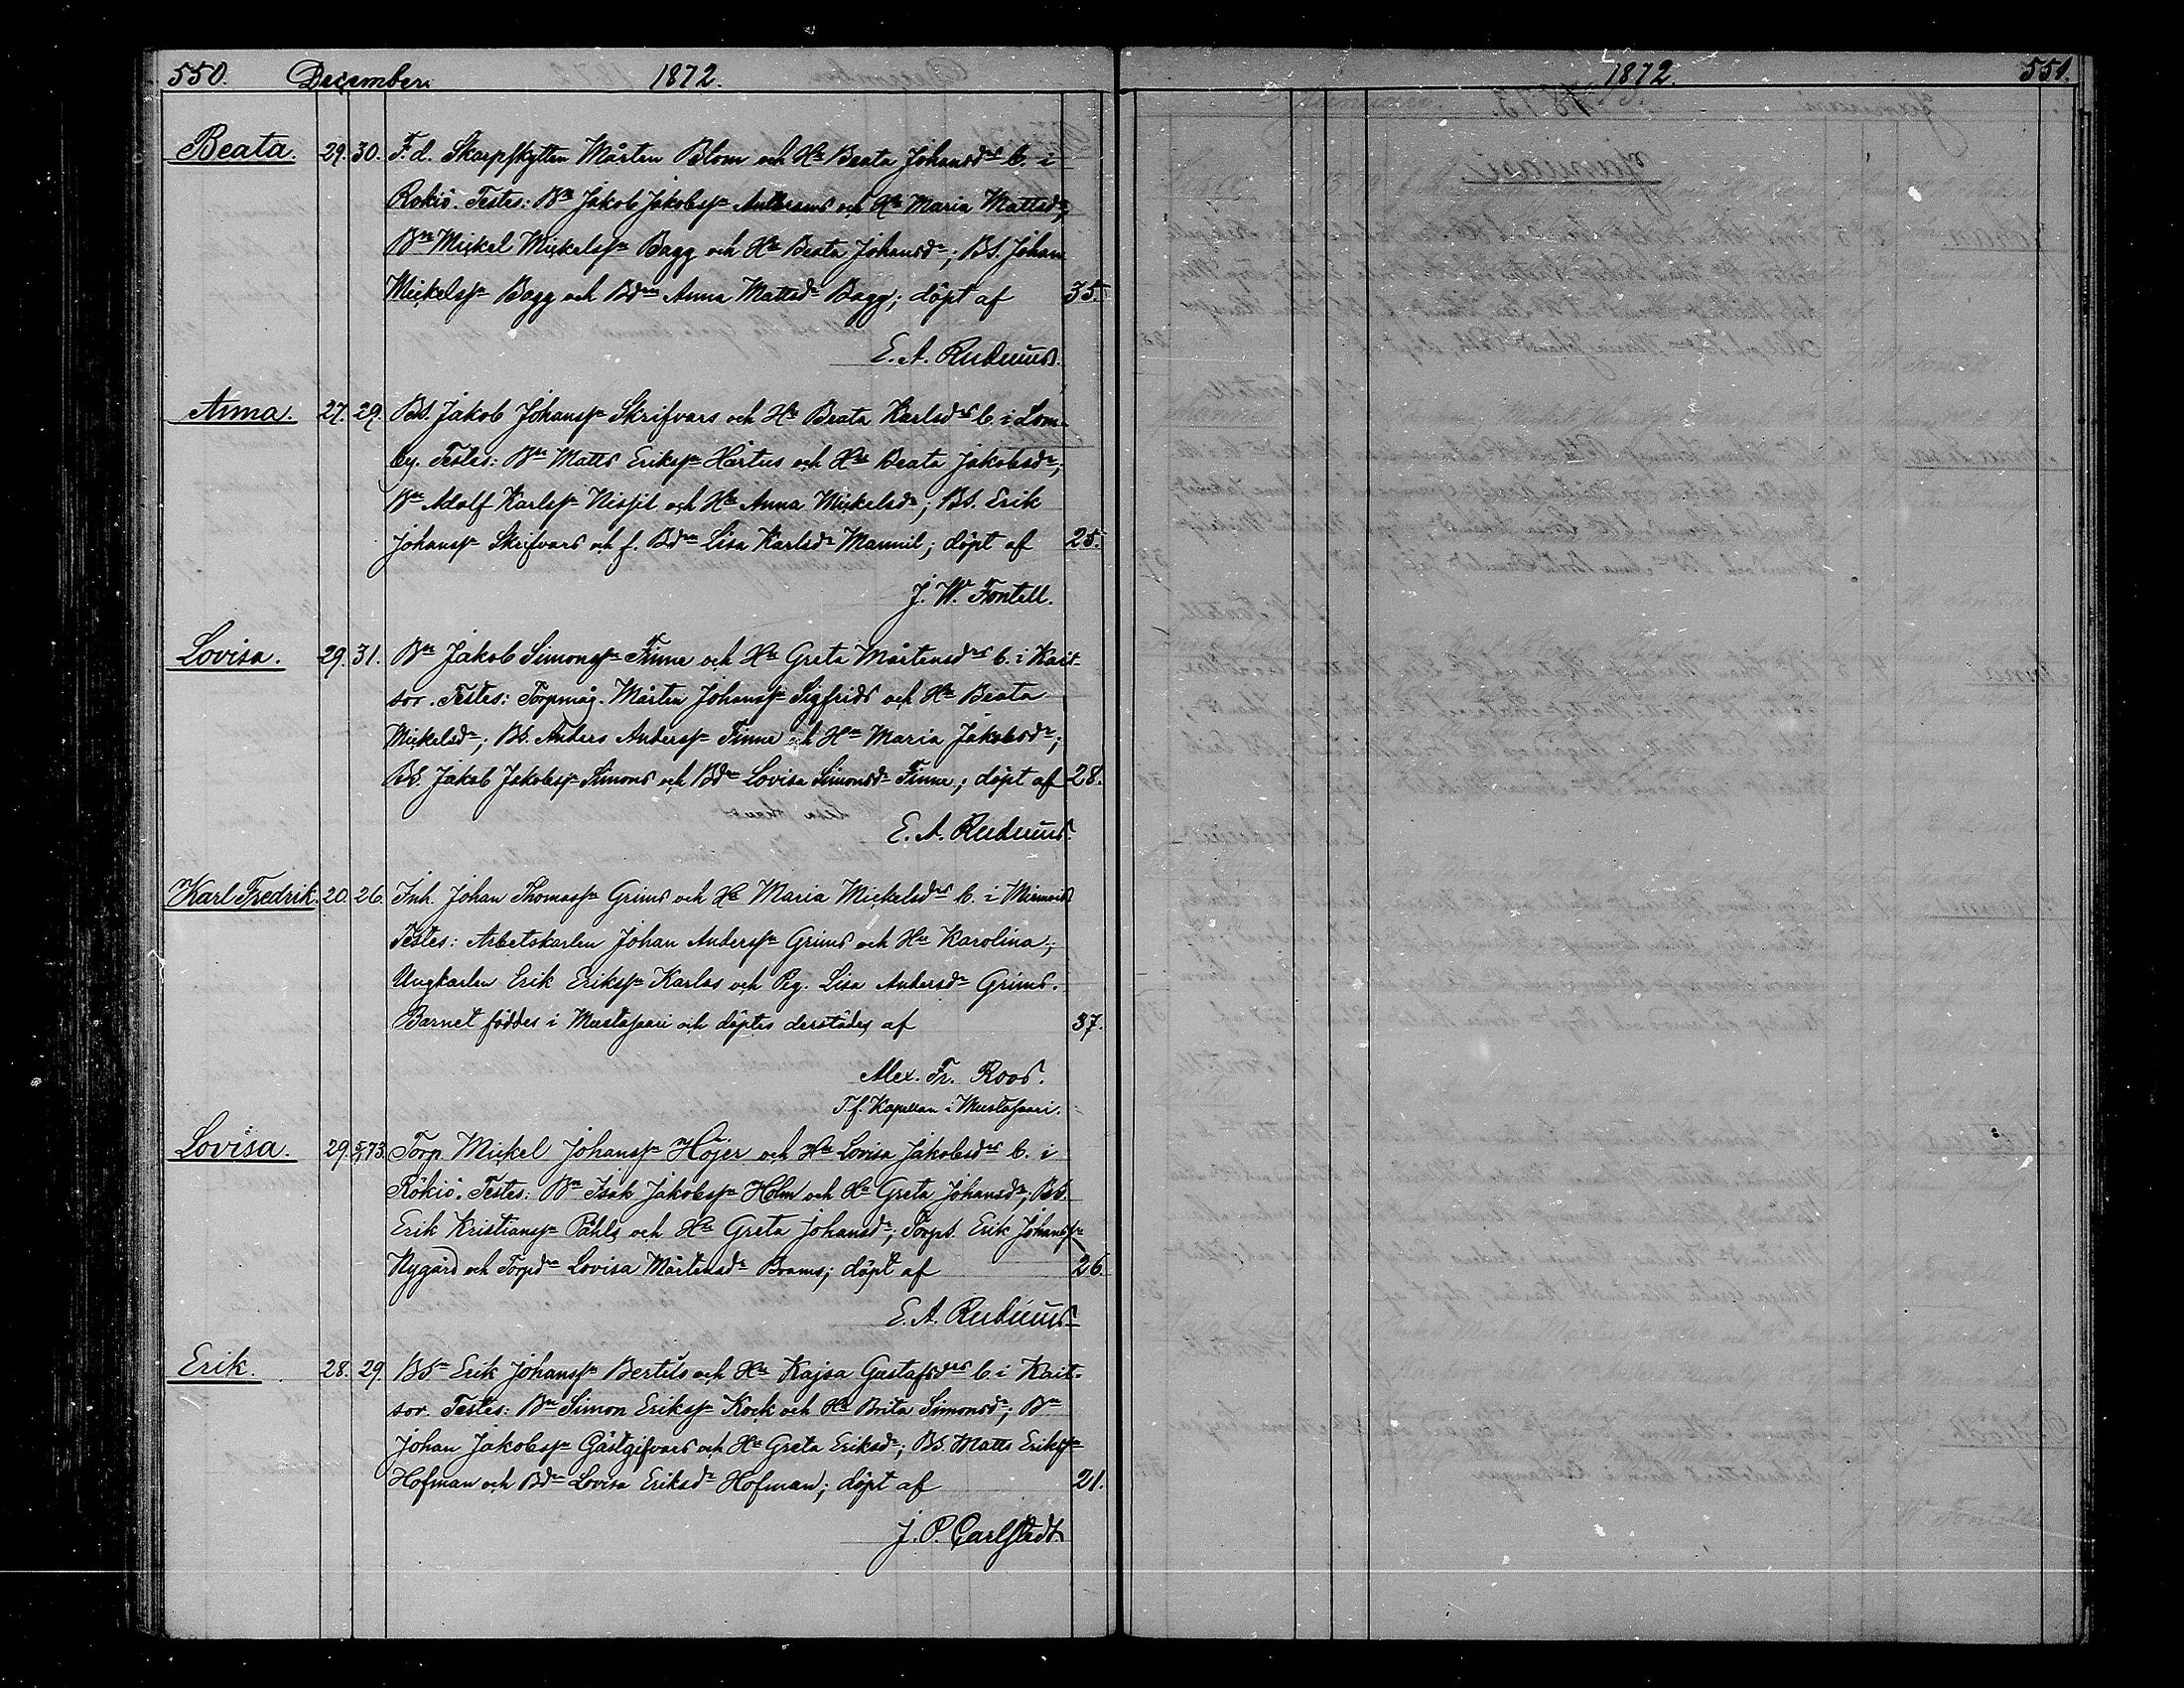 550. December. 1872.
Beata. 29. 30. F. d. Skarpskytten Mårten Blom och Hu Beata Johansdrs b. i
Rökiö. Testes: Bn Jakob Jakobsn Anthrams och Hu Maria Mattsdr;
Bn Mickel Mickelsn Bagg och Hu Beata Johansdr; BS. Johan
Mickelsn Bagg och Bdrn Anna Mattsdr Bagg; döpt af 35.
E. A. Rudnäs.
Anna. 27. 29. BS. Jakob Johansn Skrifvars och Hu Beata Karlsdrs b. i Lom-
by. Testes: Bn Matts Eriksn Härtus och Hu Beata Jakobsdr;
Bn Adolf Karlsn Nissil och Hu Anna Mickelsdr; BS. Erik
Johansn Skrifvars och f. Bdrn Lisa Karlsdr Mannil; döpt af 25.
J. W. Fontell.
Lovisa. 29. 31. Bn Jakob Simonsn Finne och Hu Greta Mårtensdrs b. i Kait-
sor. Testes: Torpmåg. Mårten Johansn Sigfrids och Hu Beata
Mickelsdr; BS. Anders Andersn Finne och Hu Maria Jakobsdr;
BS. Jakob Jakobsn Simons och Bdr Lovisa Simonsdr Finne; döpt af 28.
E. A. Rudnäs.
Karl Fredrik. 20. 26. Inh. Johan Thomasn Grims och Hu Maria Mickelsdrs b. i
Testes: Arbetskarlen Johan Andersn Grims och Hu Karolina;
Ungkarlen Erik Eriksn Karlas och Pig. Lisa Andersdr Grims.
Barnet föddes i Mustasaari och döptes derstädes af 37.
Alex. Fr. Roos.
T. f. Kapellan i Mustasaari.
Lovisa. 29. 5/1 73. Torp. Mickel Johansn Höjer och Hu Lovisa Jakobsdrs b. i
Rökiö. Testes: Bn Isak Jakobsn Holm och Hu Greta Johansdr; BS.
Erik Kristiansn Påhls och Hu Greta Johansdr; Torps. Erik Johansn
Nygård och Torpdrn Lovisa Mårtensdr Brams; döpt af 26.
E. A. Rudnäs
Erik. 28. 29. BSn Erik Johansn Bertils och Hu Kajsa Gustafsdrs b. i Kait-
sor. Testes: Bn Simon Eriksn Kock och Hu Brita Simonsdr; Bn
Johan Jakobsn Gästgifvars och Hu Greta Eriksdr; BS. Matts Eriksn
Hofman och Bdr Lovisa Eriksdr Hofman; döpt af 21.
J. P. Carlstedt
1872. 551.